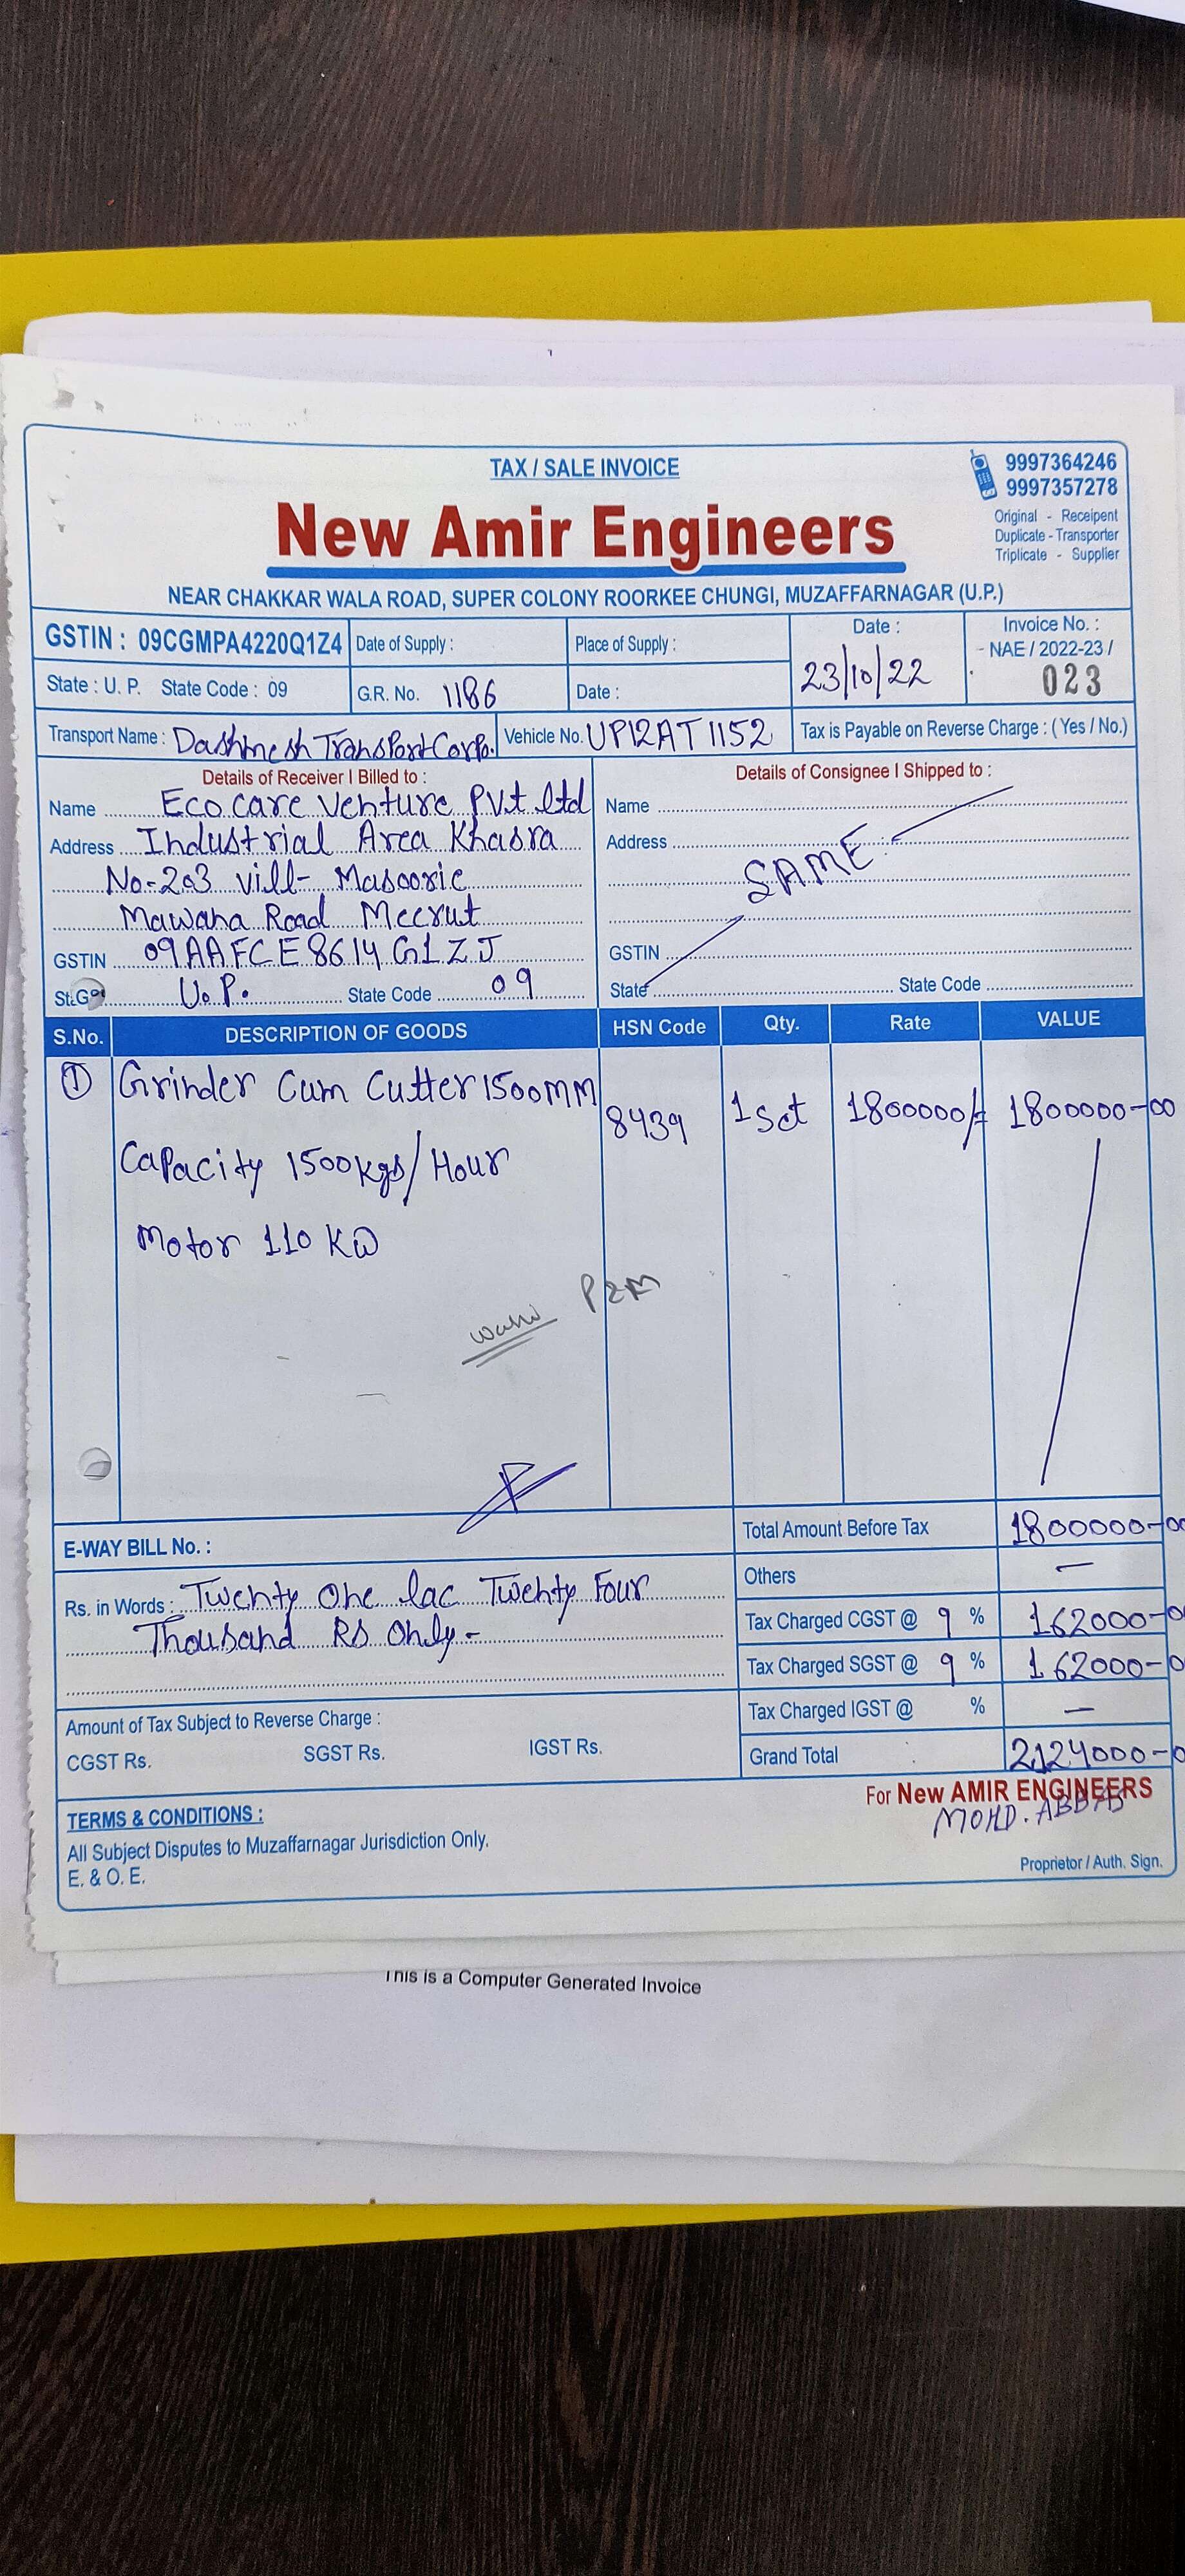 TAX / SALE INVOICE
9997364246
9997357278
New Amir Engineers
Original - Receipent
Duplicate - Transporter
Triplicate - Supplier
NEAR CHAKKAR WALA ROAD, SUPER COLONY ROORKEE CHUNGI, MUZAFFARNAGAR (U.P.)
GSTIN : 09CGMPA4220Q1Z4 Date of Supply : Place of Supply : Date : 23/10/22 Invoice No. : - NAE / 2022-23 / 023
State : U. P. State Code : 09 G.R. No. 1186 Date :
Transport Name : Dashmesh Transport Corpo. Vehicle No. UP12AT1152 Tax is Payable on Reverse Charge : ( Yes / No.)
Details of Receiver I Billed to :
Name Eco care Venture Pvt ltd
Address Industrial Area Khasra
No-203 vill- Masoorie
Mawana Road Meerut
GSTIN 09AAFCE8614G1ZJ
U.P. State Code 09
Details of Consignee I Shipped to :
Name
Address
SAME
GSTIN
State State Code
S.No. DESCRIPTION OF GOODS HSN Code Qty. Rate VALUE
① Grinder Cum Cutter 1500MM 8439 1 Set 1800000/= 1800000-00
Capacity 1500kgs/Hour
Motor 110 KW
P2M
E-WAY BILL No. :
Rs. in Words : Twenty One lac Twenty Four
Thousand Rs Only-
Total Amount Before Tax 1800000-00
Others —
Tax Charged CGST @ 9 % 162000-0
Tax Charged SGST @ 9 % 162000-0
Tax Charged IGST @ % —
Grand Total 2124000-0
Amount of Tax Subject to Reverse Charge :
CGST Rs. SGST Rs. IGST Rs.
TERMS & CONDITIONS :
All Subject Disputes to Muzaffarnagar Jurisdiction Only.
E. & O. E.
For New AMIR ENGINEERS
MOHD. ABBAS
Proprietor / Auth. Sign.
This is a Computer Generated Invoice